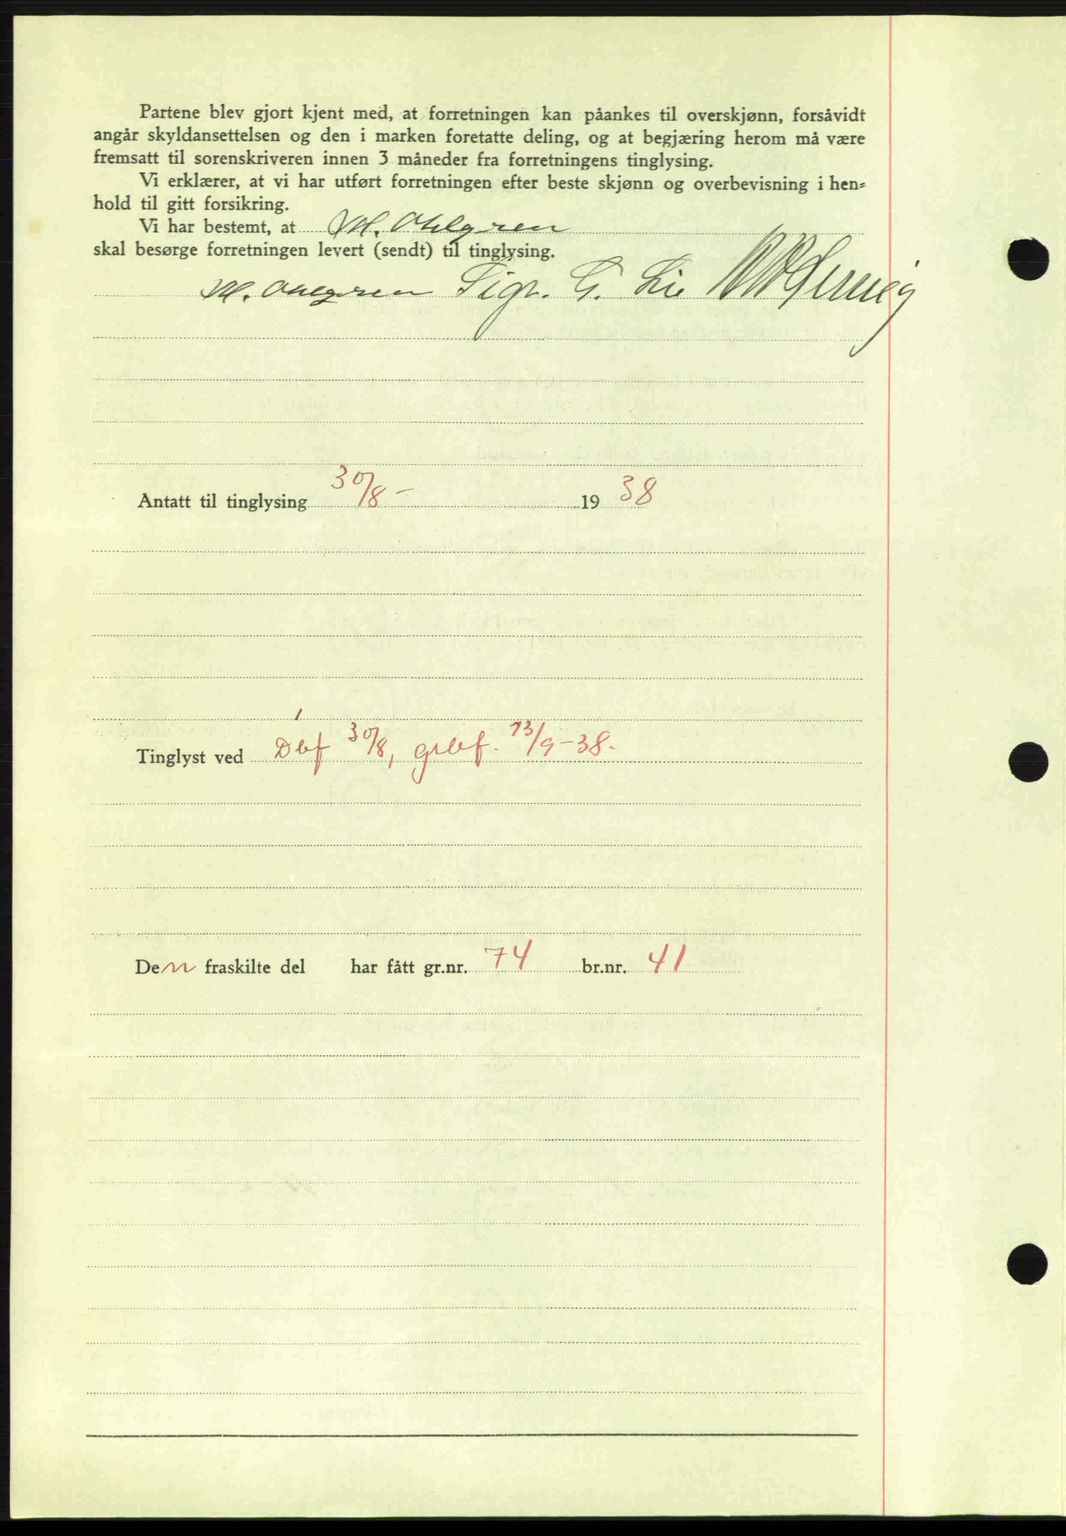 Partene blev gjort kjent med, at forretningen kan påankes til overskjønn, forsåvidt
angår skyldansettelsen og den i marken foretatte deling, og at begjæring herom må være
fremsatt til sorenskriveren innen 3 måneder fra forretningens tinglysing.
Vi erklærer, at vi har utført forretningen efter beste skjønn og overbevisning i hen=
hold til gitt forsikring.
Vi har bestemt, at M. Ohlgren
skal besørge forretningen levert (sendt) til tinglysing.
M. Ohlgren Sigv. G. Lie
Antatt til tinglysing 30/8 - 19 38
Tinglyst ved Dbf 30/8, grbf. 13/9-38.
Den fraskilte del har fått gr.nr. 74 br.nr. 41